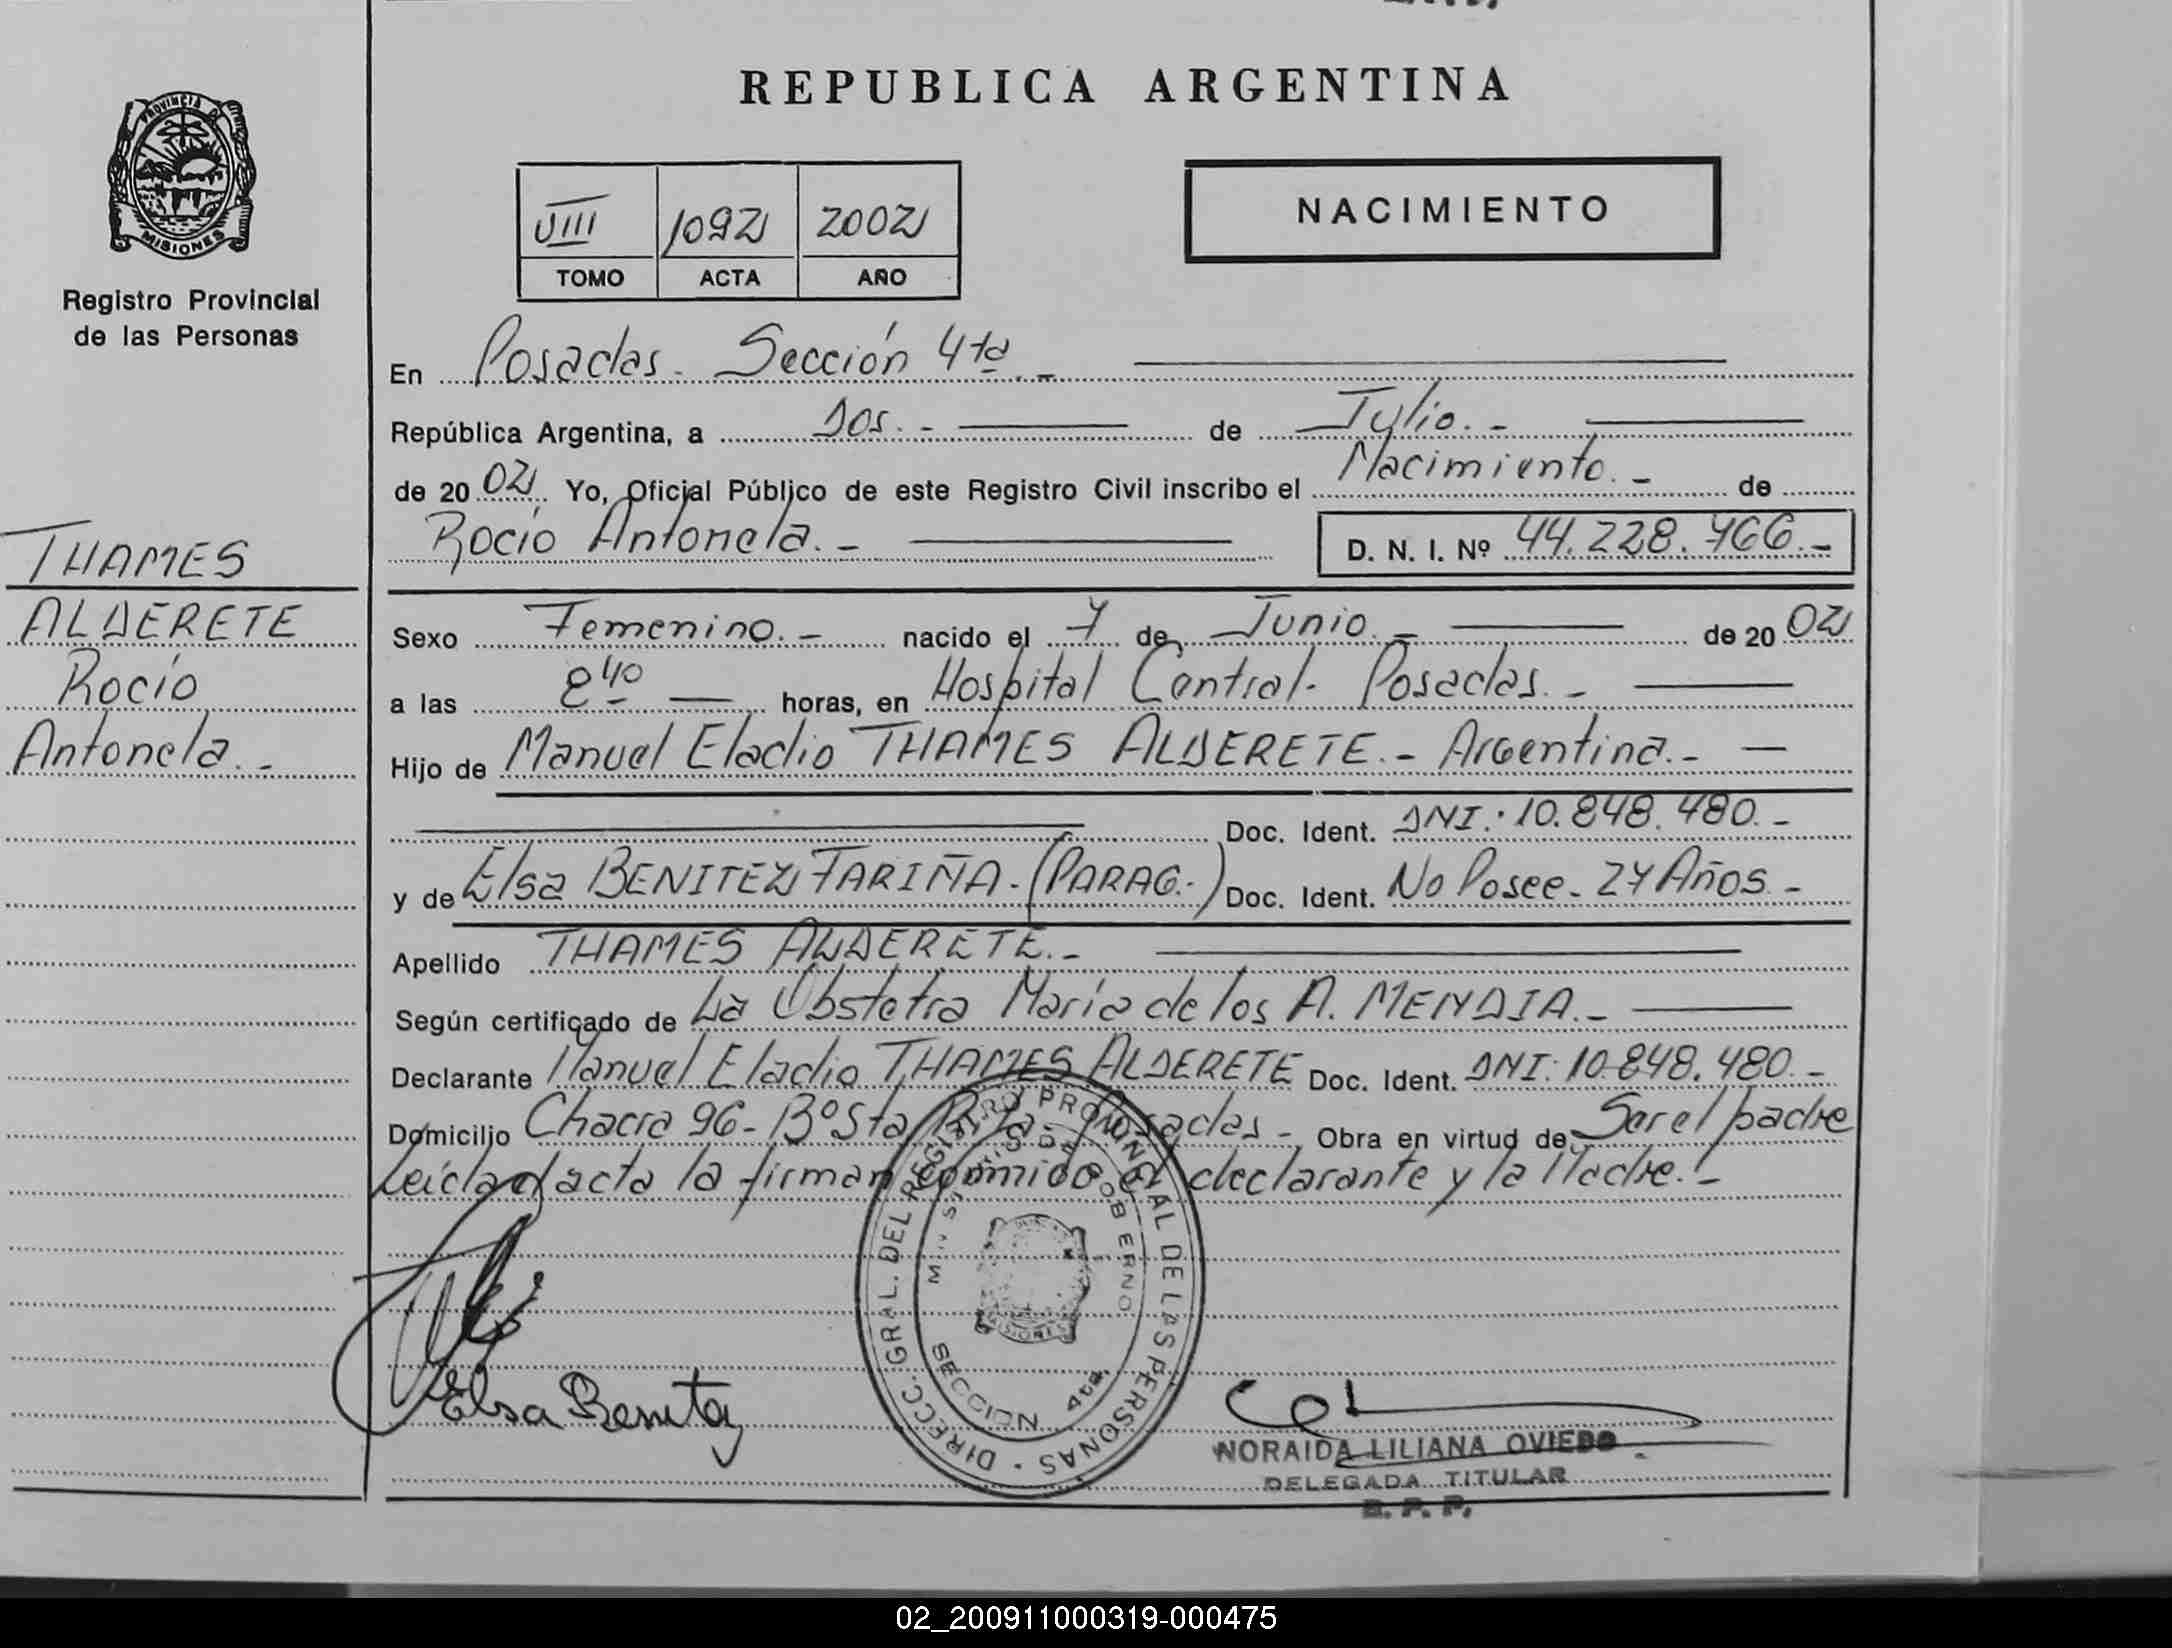 REPUBLICA ARGENTINA
PROVINCIA DE
MISIONES
Registro Provincial
de las Personas
VIII 1092 2002
TOMO ACTA AÑO
NACIMIENTO
En Posadas - Sección 4ta. -
República Argentina, a Dos. - de Julio. -
de 20 02 Yo, Oficial Público de este Registro Civil inscribo el Nacimiento. - de
Rocío Antonela. - D. N. I. Nº 44.228.766. -
THAMES
ALDERETE
Rocío
Antonela. -
Sexo Femenino. - nacido el 7 de Junio. - de 20 02
a las 8 40 horas, en Hospital Central - Posadas. -
Hijo de Manuel Eladio THAMES ALDERETE. - Argentina. -
Doc. Ident. DNI: 10.848.480. -
y de Elsa BENITEZ FARIÑA - (PARAG.-) Doc. Ident. No Posee - 27 Años -
Apellido THAMES ALDERETE. -
Según certificado de La Obstetra María de los A. MENDIA. -
Declarante Manuel Eladio THAMES ALDERETE Doc. Ident. DNI: 10.848.480. -
Domicilio Chacra 96 - Bº Sta Rita - Posadas - Obra en virtud de Ser el padre
Leída el acta la firman conmigo el declarante y la Madre. -
DIRECC. GRAL. DEL REGISTRO PROVINCIAL DE LAS PERSONAS
MINISTERIO DE GOBIERNO
MISIONES
SECCION 4ta.
Elsa Benitez
NORAIDA LILIANA OVIEDO
DELEGADA TITULAR
R. P. P.
02_200911000319-000475